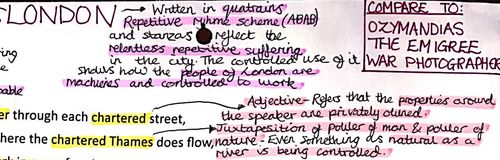 LONDON → Written in quatrains
Repetitive rhyme scheme (ABAB)
and stanzas reflect the
relentless repetitive suffering
in the city. The controlled use of it
shows how the people of London are
machieries and controlled to work.
COMPARE TO:
OZYMANDIAS
THE EMIGREE
WAR PHOTOGRAPHER
Adjective - Refers that the properties around
the speaker are privately owned.
er through each chartered street,
Juxtaposition of power of man & power of
here the chartered Thames does flow,
nature - Even something as natural as a
river is being controlled.